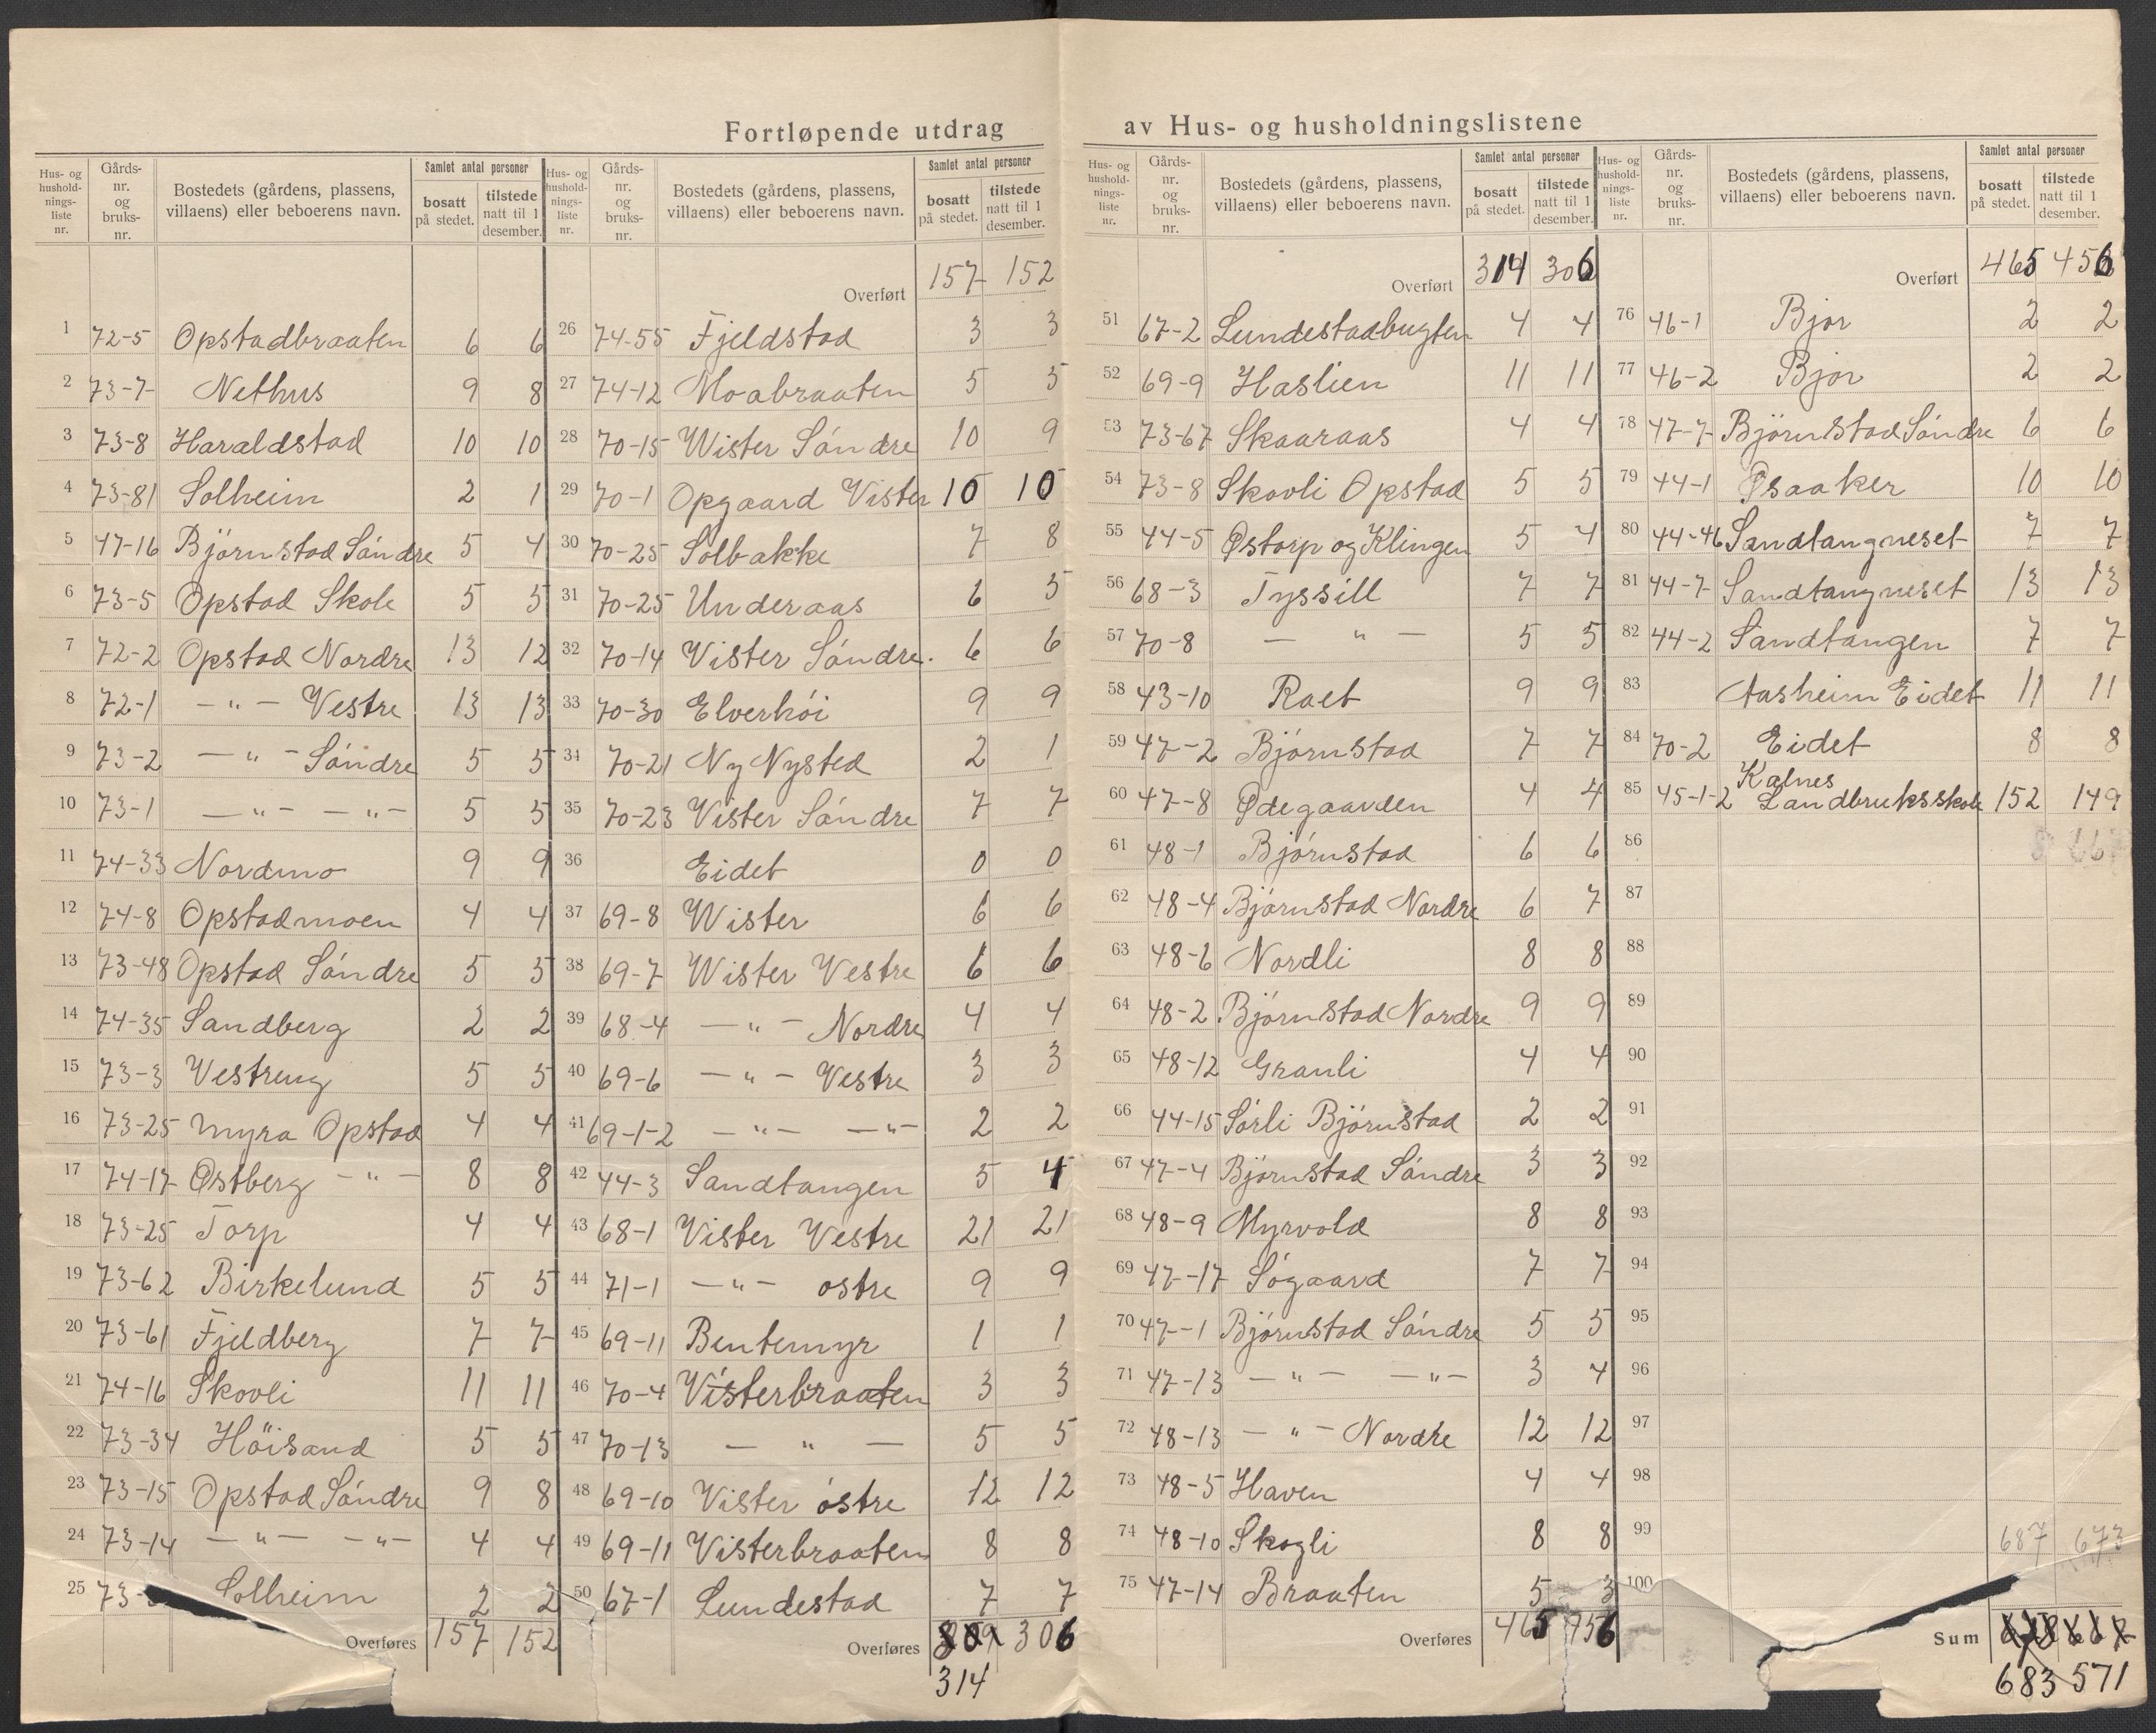 Fortløpende utdrag av Hus- og husholdningslistene
Hus- og husholdnings- liste nr. | Gårds- nr. og bruks- nr. | Bostedets (gårdens, plassens, villaens) eller beboerens navn. | Samlet antal personer bosatt på stedet. | tilstede natt til 1 desember.
1 72-5 Opstadbraaten 6 6
2 73-7 Nethus 9 8
3 73-8 Haraldstad 10 10
4 73-81 Solheim 2 1
5 47-16 Björnstad Söndre 5 4
6 73-5 Opstad Skole 5 5
7 72-2 Opstad Nordre 13 12
8 72-1 — " — Vestre 13 13
9 73-2 — " — Söndre 5 5
10 73-1 — " — — " — 5 5
11 74-33 Nordmo 9 9
12 74-8 Opstadmoen 4 4
13 73-48 Opstad Söndre 5 5
14 74-35 Sandberg 2 2
15 73-3 Vestreng 5 5
16 73-25 Myra Opstad 4 4
17 74-17 Østberg — " — 8 8
18 73-25 Torp 4 4
19 73-62 Birkelund 5 5
20 73-61 Fjeldberg 7 7
21 74-16 Skovli 11 11
22 73-34 Höisand 5 5
23 73-15 Opstad Söndre 9 8
24 73-14 — " — — " — 4 4
25 73- Solheim 2 2
Overføres 157 152
Hus- og husholdnings- liste nr. | Gårds- nr. og bruks- nr. | Bostedets (gårdens, plassens, villaens) eller beboerens navn. | Samlet antal personer bosatt på stedet. | tilstede natt til 1 desember.
Overført 157 152
26 74-55 Fjeldstad 3 3
27 74-12 Moabraaten 5 5
28 70-15 Wister Söndre 10 9
29 70-1 Opgaard Vister 10 10
30 70-25 Solbakke 7 8
31 70-25 Underaas 6 5
32 70-14 Vister Söndre. 6 6
33 70-30 Elverhöi 9 9
34 70-21 Ny Nysted 2 1
35 70-23 Vister Söndre 7 7
36 Eidet 0 0
37 69-8 Wister 6 6
38 69-7 Wister Vestre 6 6
39 68-4 — " — Nordre 4 4
40 69-6 — " — Vestre 3 3
41 69-1-2 — " — — " — 2 2
42 44-3 Sandtangen 5 4
43 68-1 Vister Vestre 21 21
44 71-1 — " — ostre 9 9
45 69-11 Bentemyr 1 1
46 70-4 Visterbraaten 3 3
47 70-13 — " — 5 5
48 69-10 Vister östre 12 12
49 69-11 Visterbraaten 8 8
50 67-1 Lundestad 7 7
Overføres 309 306
314
Hus- og husholdnings- liste nr. | Gårds- nr. og bruks- nr. | Bostedets (gårdens, plassens, villaens) eller beboerens navn. | Samlet antal personer bosatt på stedet. | tilstede natt til 1 desember.
Overført 314 306
51 67-2 Lundestadbugten 4 4
52 69-9 Haslien 11 11
53 73-67 Skaaraas 4 4
54 73-8 Skovli Opstad 5 5
55 44-5 Østorp og Klingen 5 4
56 68-3 Tyssill 7 7
57 70-8 — " — 5 5
58 43-10 Raet 9 9
59 47-2 Björnstad 7 7
60 47-8 Ødegaarden 4 4
61 48-1 Björnstad 6 6
62 48-4 Björnstad Nordre 6 7
63 48-6 Nordli 8 8
64 48-2 Björnstad Nordre 9 9
65 48-12 Granli 4 4
66 44-15 Sörli Björnstad 2 2
67 47-4 Björnstad Söndre 3 3
68 48-9 Myrvold 8 8
69 47-17 Sögaard 7 7
70 47-1 Björnstad Söndre 5 5
71 47-13 — " — — " — 3 4
72 48-13 — " — Nordre 12 12
73 48-5 Haven 4 4
74 48-10 Skogli 8 8
75 47-14 Braaten 5 3
Overføres 465 456
Hus- og husholdnings- liste nr. | Gårds- nr. og bruks- nr. | Bostedets (gårdens, plassens, villaens) eller beboerens navn. | Samlet antal personer bosatt på stedet. | tilstede natt til 1 desember.
Overført 465 456
76 46-1 Bjor 2 2
77 46-2 Bjor 2 2
78 47-7 Björnstad Söndre 6 6
79 44-1 Øsaaker 10 10
80 44-46 Sandtangneset 7 7
81 44-7 Sandtangneset 13 13
82 44-2 Sandtangen 7 7
83 Aasheim Eidet 11 11
84 70-2 Eidet 8 8
85 45-1-2 Kalnes Landbruksskole 152 149
86
87
88
89
90
91
92
93
94
95
96
97
98
99 687 673
100
Sum
683 571